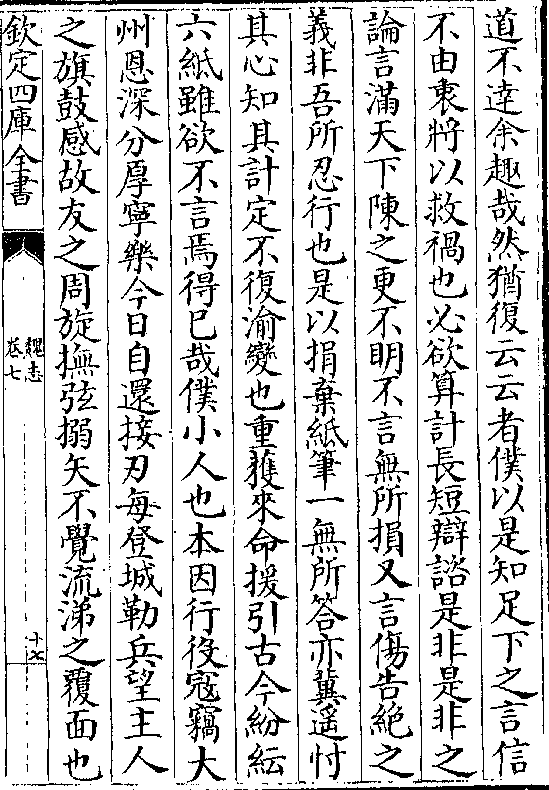 道不達余趣哉然猶復云云者僕以是知足下之言信
不由衷將以救禍也必欲算計長短辯諮是非是非之
論言滿天下陳之更不明不言無所損又言傷告絶之
義非吾所忍行也是以捐棄紙筆一無所答亦冀遥忖
其心知其計定不復渝變也重獲來命援引古今紛紜
六紙雖欲不言焉得已哉僕小人也本因行役冦竊大
州恩深分厚寧樂今日自還接刃每登城勒兵望主人
之旗鼓感故友之周旋撫弦搦矢不覺流涕之覆面也
欽定四庫全書
魏志
卷七
十七